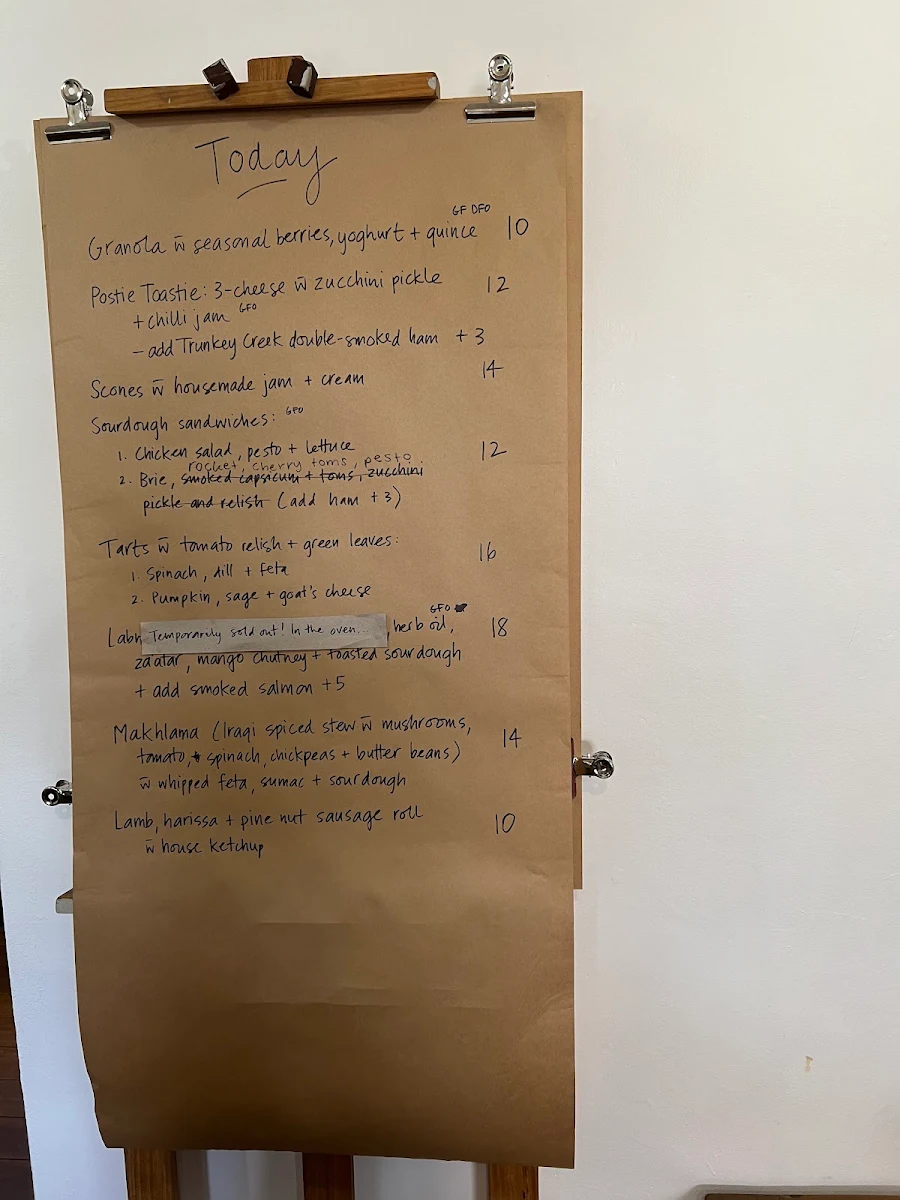 Today
GF DFO
Granola w̄ seasonal berries, yoghurt + quince 10
Postie Toastie: 3-cheese w̄ zucchini pickle 12
+ chilli jam GFO
- add Trunkey Creek double-smoked ham + 3
Scones w̄ housemade jam + cream 14
Sourdough sandwiches: GFO
1. Chicken salad, pesto + lettuce 12
rocket, cherry toms, pesto
2. Brie, smoked capsicum + toms, zucchini
pickle and relish (add ham + 3)
Tarts w̄ tomato relish + green leaves: 16
1. Spinach, dill + feta
2. Pumpkin, sage + goat's cheese
GFO
Labn Temporarily sold out! In the oven... , herb oil, 18
za'atar, mango chutney + toasted sourdough
+ add smoked salmon +5
Makhlama (Iraqi spiced stew w̄ mushrooms, 14
tomato, spinach, chickpeas + butter beans)
w̄ whipped feta, sumac + sourdough
Lamb, harissa + pine nut sausage roll 10
w̄ house ketchup